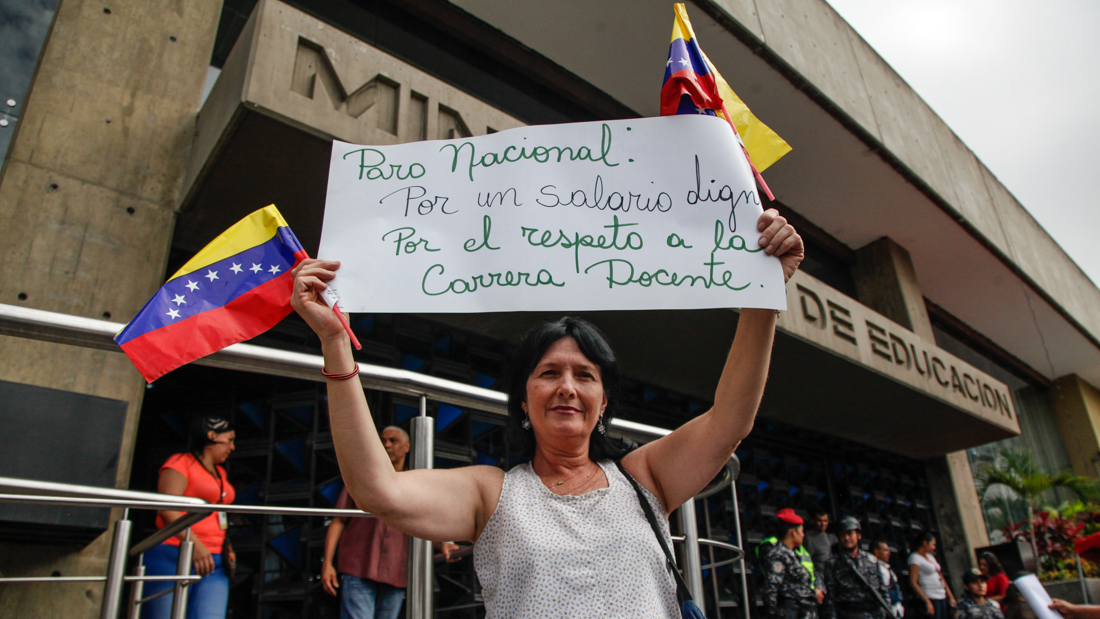 MIN
Paro Nacional:
Por un salario dign
Por el respeto a la
Carrera Docente.
DE EDUCACION